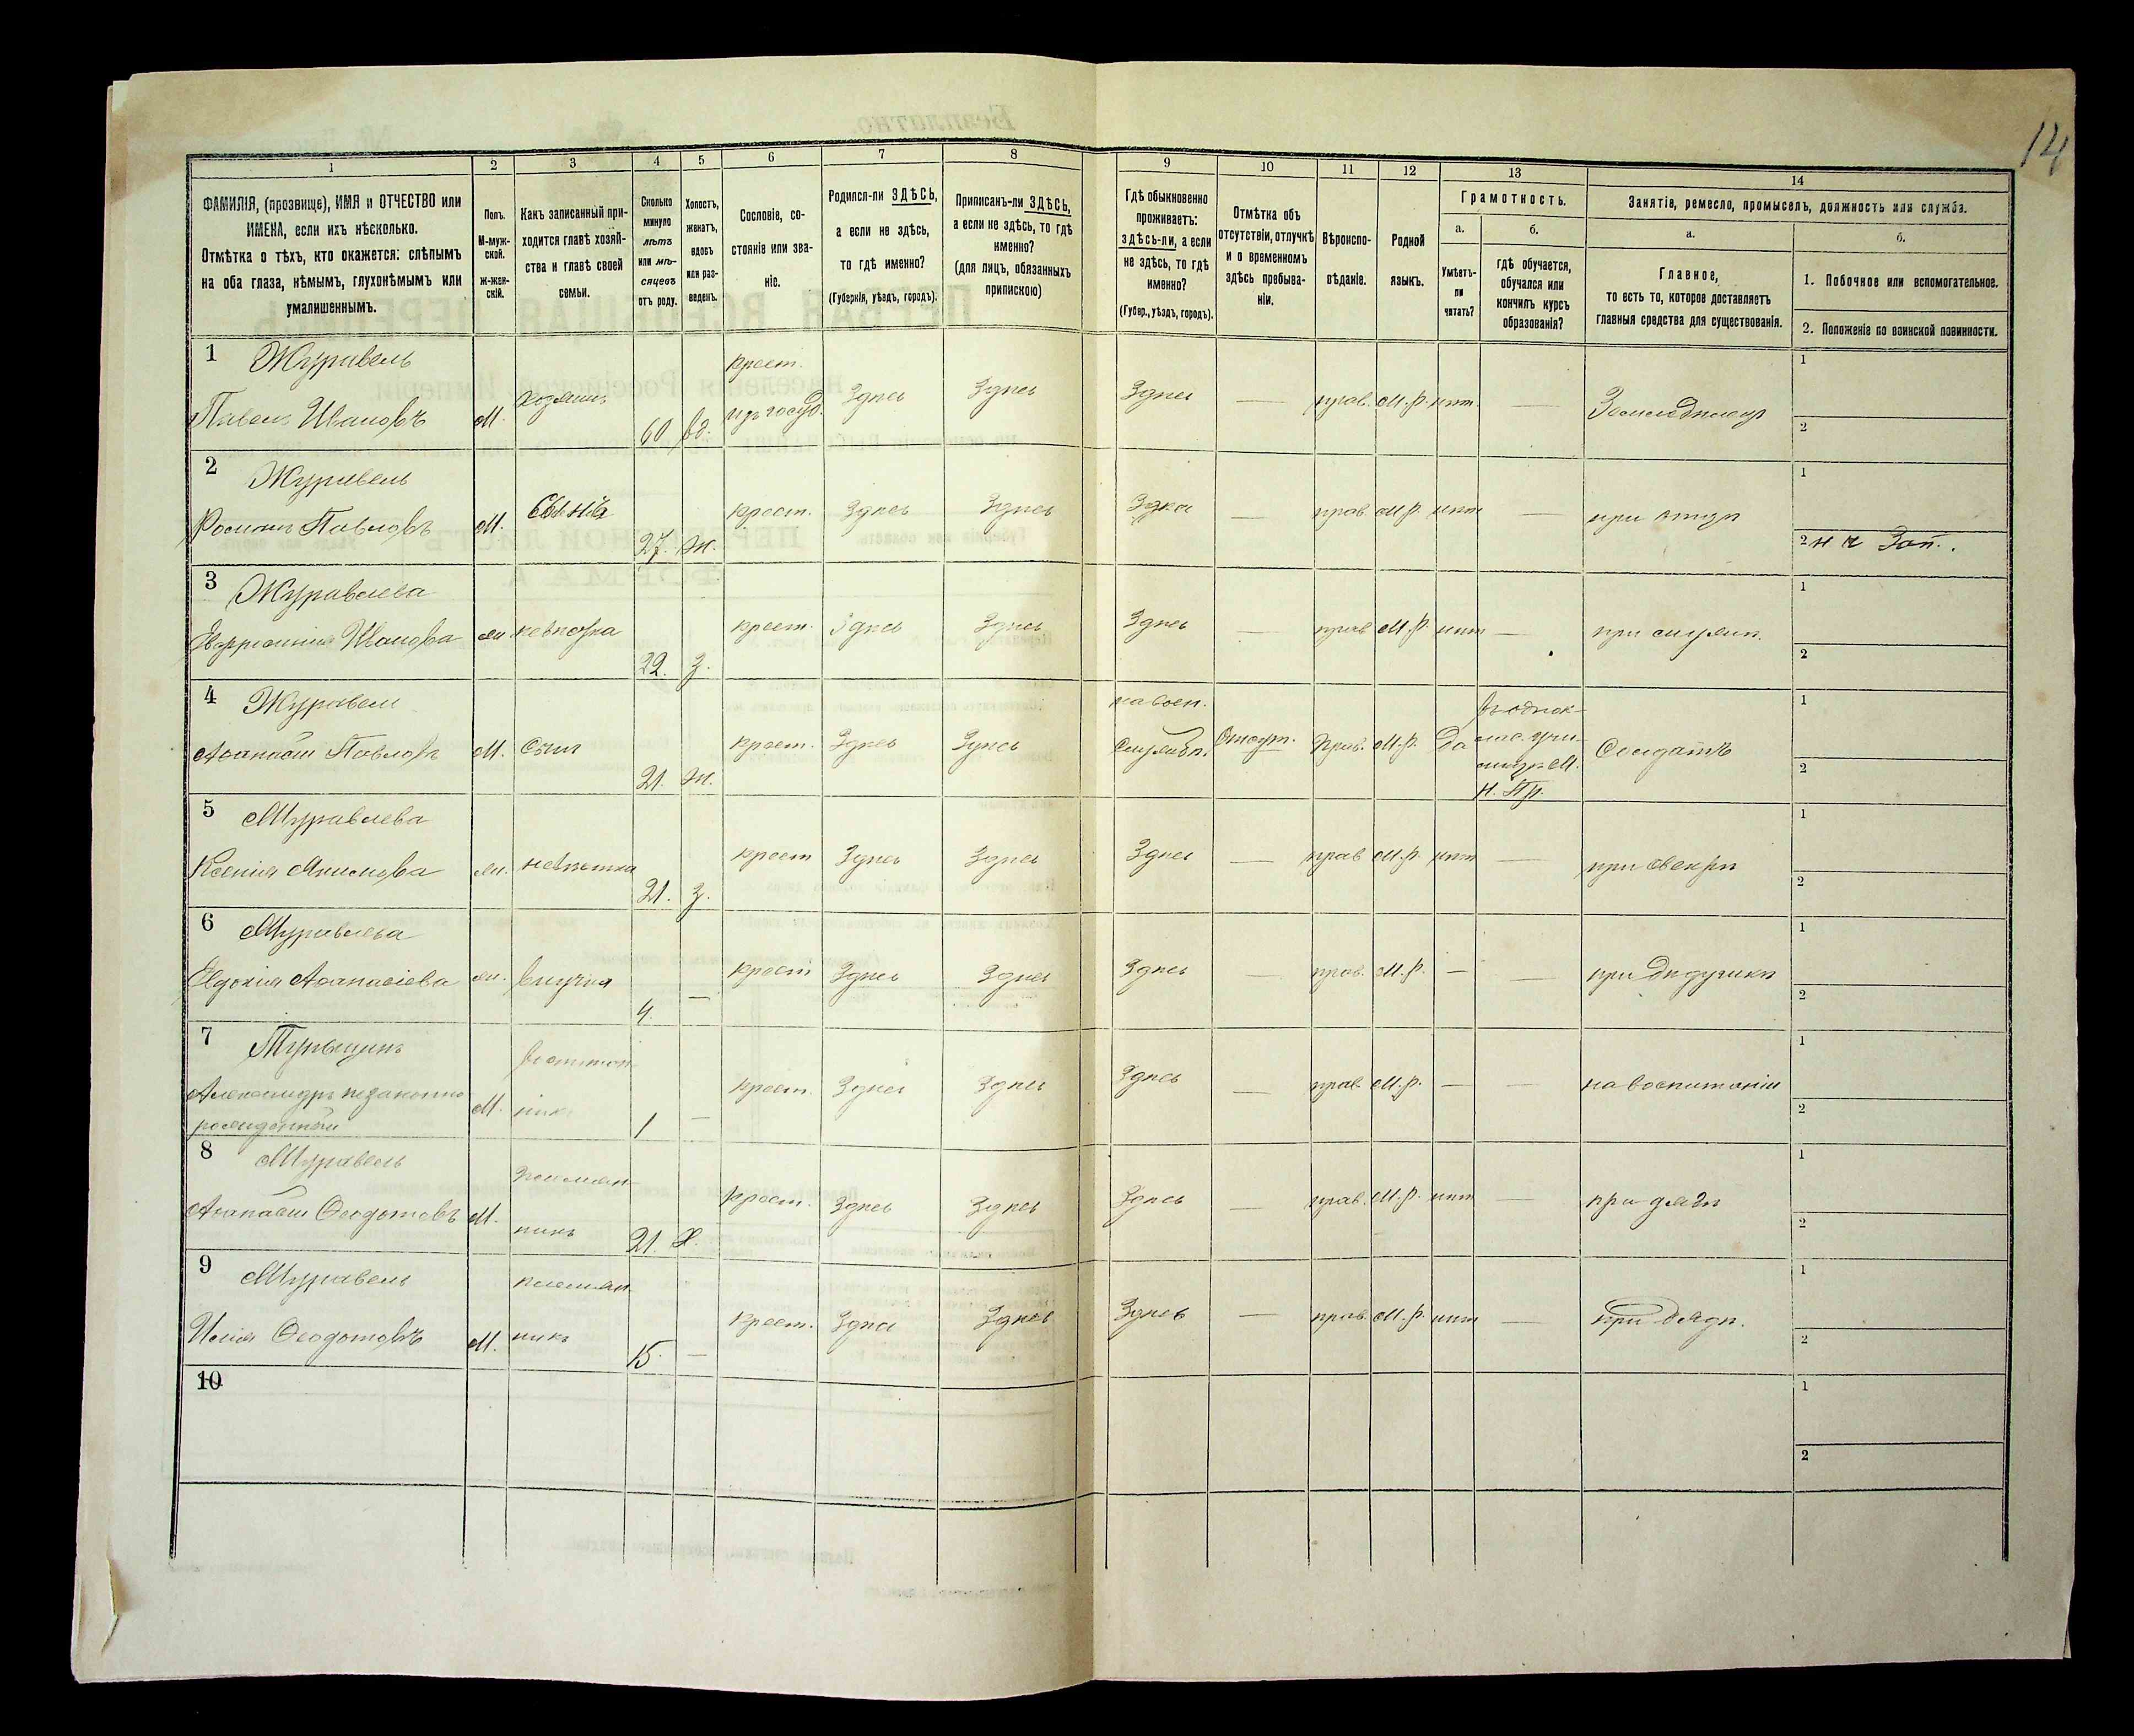 14
1 2 3 4 5 6 7 8 9 10 11 12 13 14
ФАМИЛІЯ, (прозвище), ИМЯ и ОТЧЕСТВО или
ИМЕНА, если ихъ нѣсколько.
Отмѣтка о тѣхъ, кто окажется: слѣпымъ
на оба глаза, нѣмымъ, глухонѣмымъ или
умалишеннымъ.
Полъ.
М-муж-
ской.
Ж-жен-
скій.
Какъ записанный при-
ходится главѣ хозяй-
ства и главѣ своей
семьи.
Сколько
минуло
лѣтъ
или мѣ-
сяцевъ
отъ роду.
Холостъ,
женатъ,
вдовъ
или раз-
веденъ.
Сословіе, со-
стояніе или зва-
ніе.
Родился-ли ЗДѢСЬ,
а если не здѣсь,
то гдѣ именно?
(Губернія, уѣздъ, городъ).
Приписанъ-ли ЗДѢСЬ,
а если не здѣсь, то гдѣ
именно?
(для лицъ, обязанныхъ
припискою)
Гдѣ обыкновенно
проживаетъ:
здѣсь-ли, а если
не здѣсь, то гдѣ
именно?
(Губер., уѣздъ, городъ).
Отмѣтка объ
отсутствіи, отлучкѣ
и о временномъ
здѣсь пребыва-
ніи.
Вѣроиспо-
вѣданіе.
Родной
языкъ.
Грамотность.
а.
Умѣетъ-
ли
читать?
б.
гдѣ обучается,
обучался или
кончилъ курсъ
образованія?
Занятіе, ремесло, промыселъ, должность или служба.
а.
Главное,
то есть то, которое доставляетъ
главныя средства для существованія.
б.
1. Побочное или вспомогательное.
2. Положеніе по воинской повинности.
1 Журавель крест. 1
Павелъ Ивановъ М. хозяинъ 60 вд. изъ госуд. Здѣсь Здѣсь Здѣсь — прав. М.р. нѣт. — Земледѣлецъ 2
2 Журавель 1
Романъ Павловъ М. Сынъ 27. Ж. крест. Здѣсь Здѣсь — прав. М.р. нѣт — при отцѣ 2
3 Журавлева 1
Евфросинія Иванова невѣстка 22. З. крест. Здѣсь Здѣсь Здѣсь — прав М.р. нѣт — при мужѣ. 2
4 Журавель на воен. въ однок- 1
Аѳанасій Павловъ М. Сынъ 21. Ж. крест. Здѣсь Здѣсь Службѣ. Отсут. Прав. М.р. Да лас. учи- Солдатъ 2
лищѣ М.
Н. Пр.
5 Журавлева 1
Ксенія Акимова ж. невѣстка 21. З. крест Здѣсь Здѣсь Здѣсь — прав М.р. нѣт — при свекрѣ 2
6 Журавлева 1
Евдокія Аѳанасіева ж. внучка 4. — крест Здѣсь Здѣсь Здѣсь — прав. М.р. — — при дѣдушкѣ 2
7 воспитан- 1
Александръ незаконно М. никъ 1 — крест. Здѣсь Здѣсь Здѣсь — прав. М.р. — — на воспитаніи 2
рожденный
8 Журавель племян- 1
Аѳанасій Ѳеодотовъ М. никъ 21. Х. крест. Здѣсь Здѣсь Здѣсь — прав. М.р. нѣт — при дядѣ 2
9 Журавель племян- 1
Илія Ѳеодотовъ М. никъ 15. — крест. Здѣсь Здѣсь Здѣсь — прав. М.р. нѣт — при дядѣ. 2
10 1
2